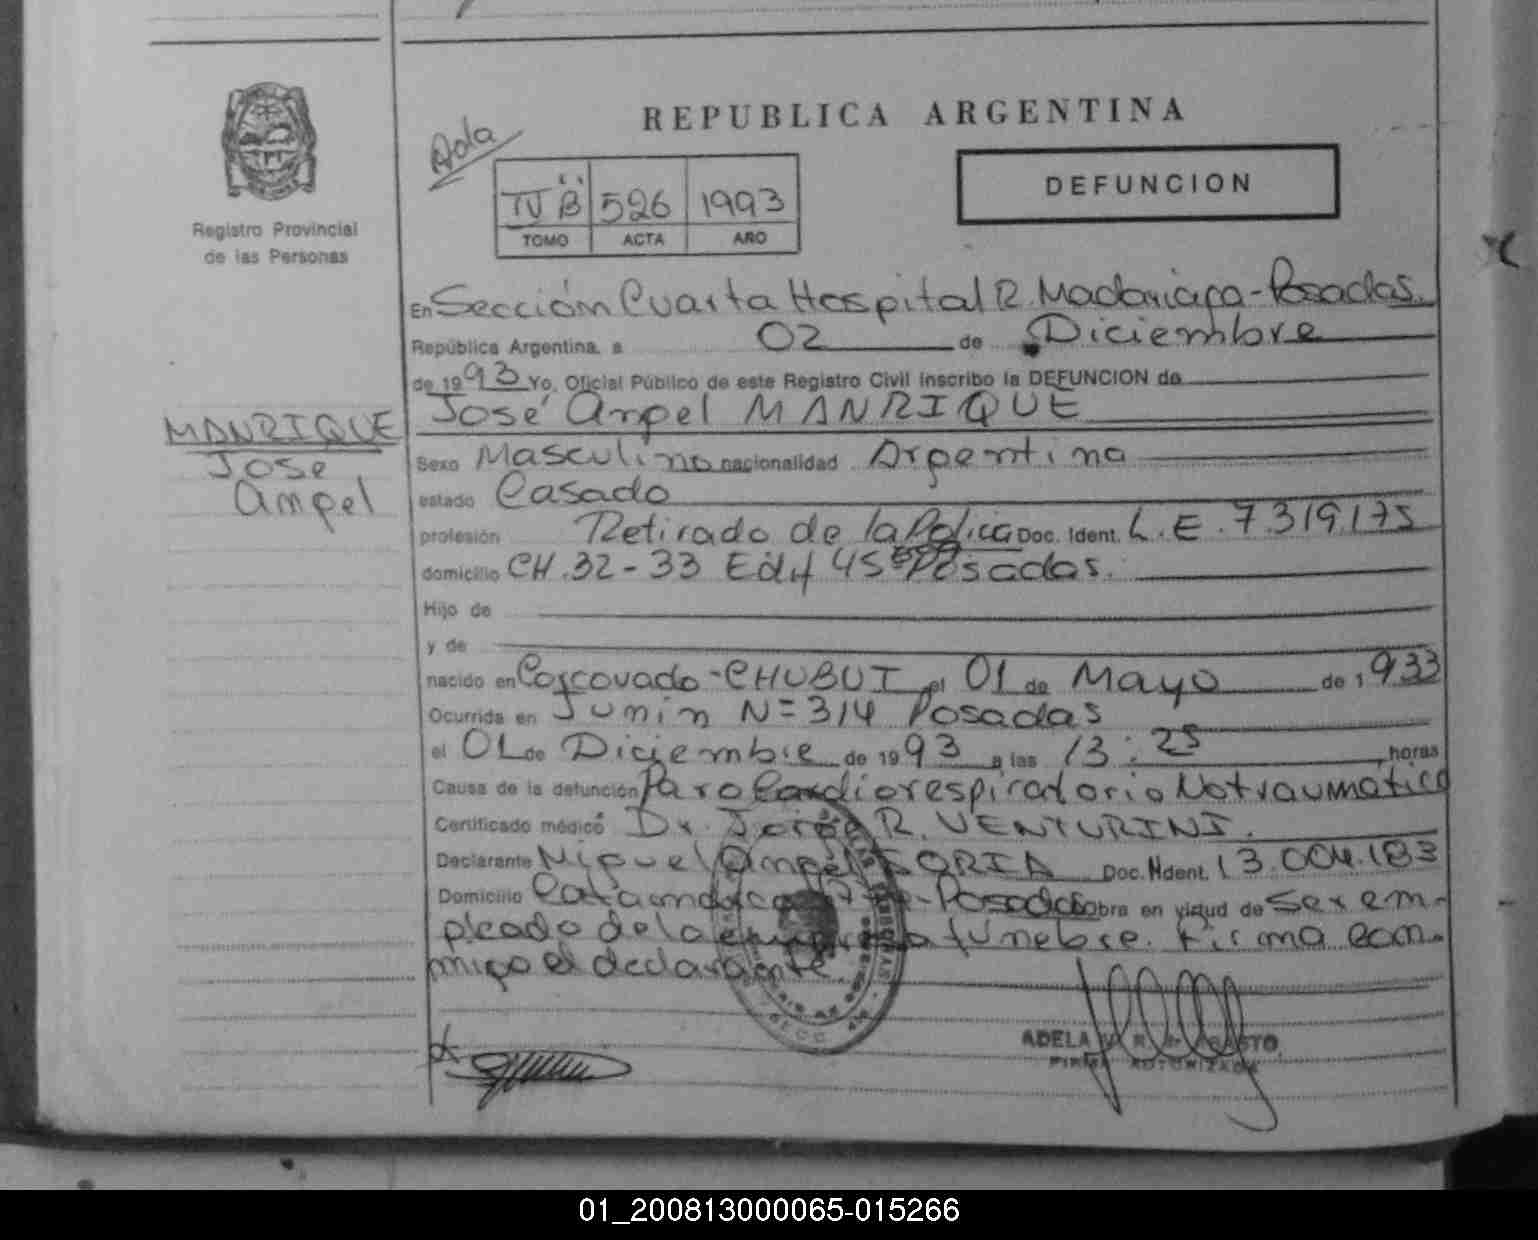 REPUBLICA ARGENTINA
Registro Provincial
de las Personas
Ada
IV B 526 1993
TOMO ACTA AÑO
DEFUNCION
En Sección Cuarta Hospital R. Madariaga - Posadas.
República Argentina, a 02 de Diciembre
de 1993 Yo, Oficial Público de este Registro Civil inscribo la DEFUNCION de
José Angel MANRIQUE
MANRIQUE
Jose
Angel
Sexo Masculino nacionalidad Argentina
estado Casado
profesión Retirado de la Policia Doc. Ident. L.E. 7.319.175
domicilio CH. 32-33 Edif 45 Posadas.
Hijo de
y de
nacido en Corcovado - CHUBUT el 01 de Mayo de 1933
Ocurrida en Junin Nº 314 Posadas
el 01 de Diciembre de 1993 a las 13:25 horas
Causa de la defunción Paro Cardiorespiratorio No traumatico
Certificado médico Dr. Jorge R. VENTURINI.
Declarante Miguel Angel SORIA Doc. Ident. 13.004.183
Domicilio Posadas obra en virtud de Ser em-
pleado de la empresa funebre. Firma con-
migo el declarante.
ADELA
FIRMA AUTORIZADA
01_200813000065-015266